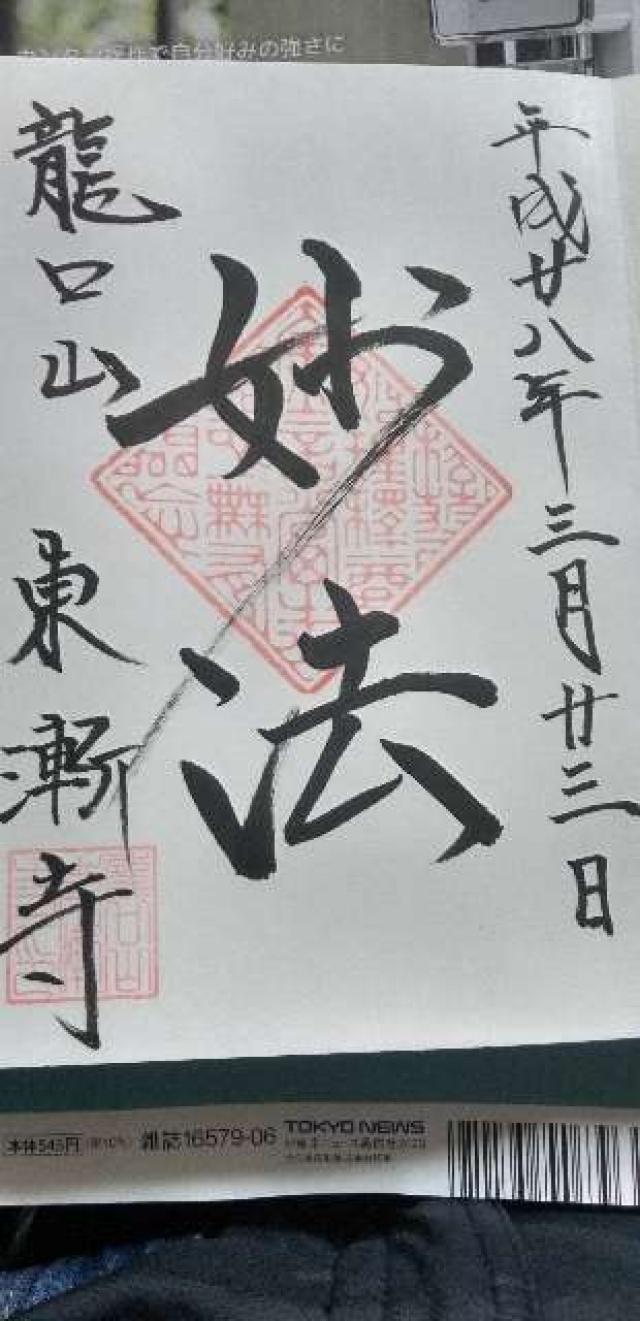 カンタン操作で自分好みの強さに
平成廿八年三月廿三日
妙法
龍口山 東漸寺
本体545円
雑誌16579-06
TOKYO NEWS